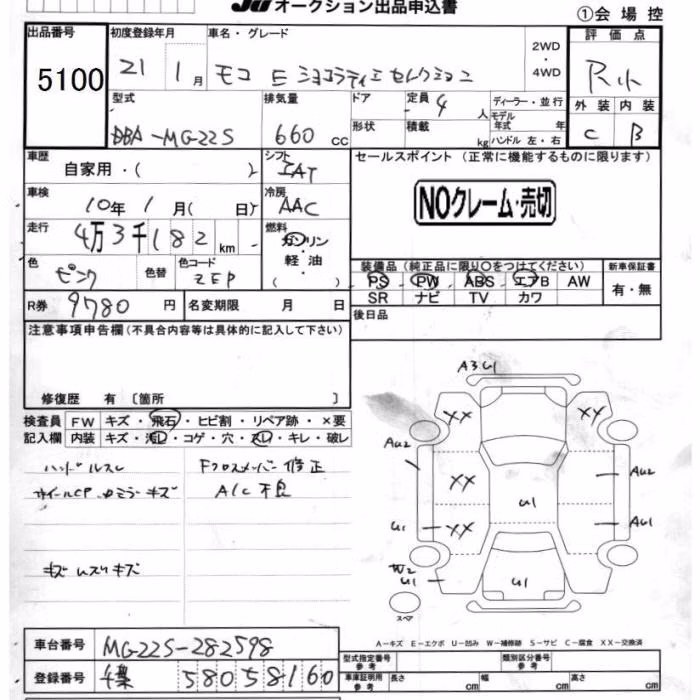 JU オークション出品申込書
①会場控
出品番号 初度登録年月 車名・グレード 2WD・4WD 評価点
5100 21 1月 モコ E ショコラティエ セレクション R小
型式 排気量 ドア 定員 4人 ディーラー・並行 外装 内装
DBA-MG22S 660cc 形状 積載 kg モデル年式 年 ハンドル 左・右 C B
車歴 自家用・( ) シフト IAT セールスポイント (正常に機能するものに限ります)
車検 10年1月( 日) 冷房 AAC NOクレーム・売切
走行 4万3千182km 燃料 ガソリン 軽油 ( )
色 ピンク 色替 色コード ZEP 装備品 (純正品に限り○をつけてください) 新車保証書
PS PW ABS エアB AW 有・無
SR ナビ TV カワ
R券 9780円 名変期限 月 日 後日品
注意事項申告欄(不具合内容等は具体的に記入して下さい)
修復歴 有 〔箇所 〕
検査員 FW キズ・飛石・ヒビ割・リペア跡・×要
記入欄 内装 キズ・汚レ・コゲ・穴・スレ・キレ・破レ
ハンドルスレ Fクロスメンバー修正
ホイールCP キズ A/C不良
キズ キズ
A3 U1
XX XX
AU2
XX AU2
U1
U1 XX AU1
W2
U1 U1
スペア
A-キズ E-エクボ U-凹み W-補修跡 S-サビ C-腐食 XX-交換済
車台番号 MG22S-282598 型式指定番号 参考 類別区分番号 参考
登録番号 千葉 580 58160 車庫証明用 参考 長さ cm 幅 cm 高さ cm